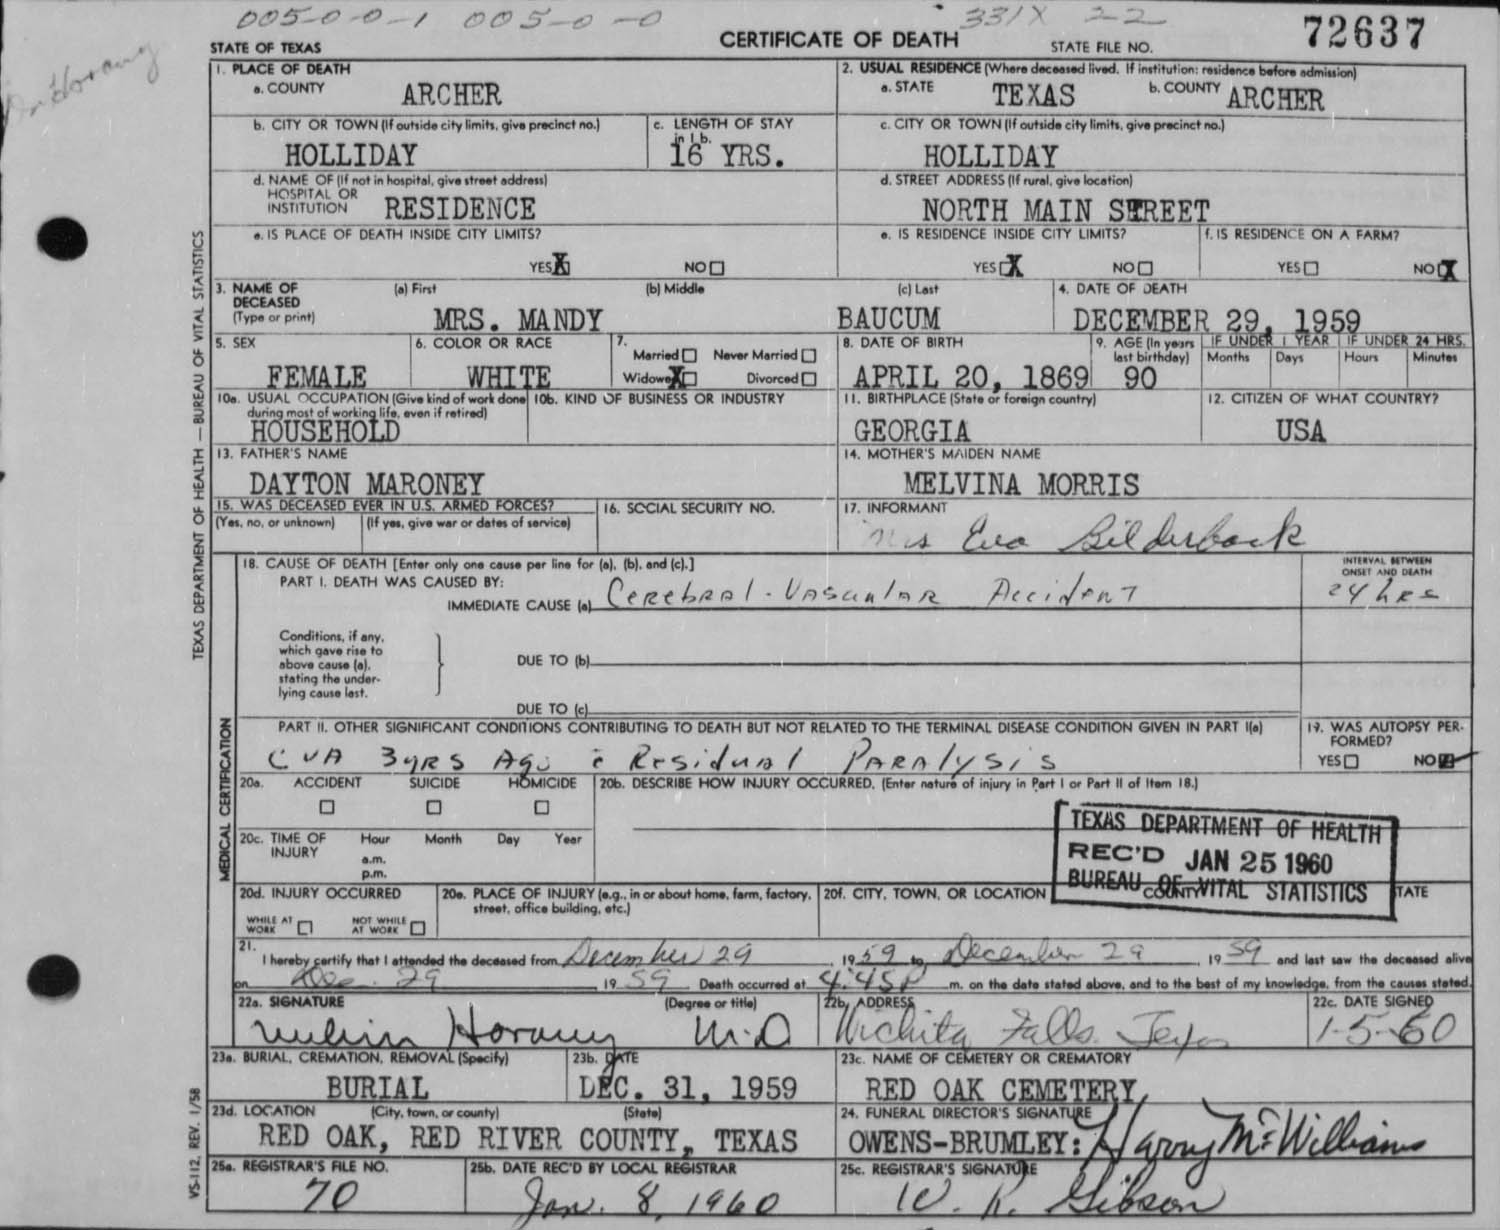 005-0-0-1 005-0-0 331X 22
72637
CERTIFICATE OF DEATH
STATE OF TEXAS STATE FILE NO.
Dr. Horany
TEXAS DEPARTMENT OF HEALTH — BUREAU OF VITAL STATISTICS
1. PLACE OF DEATH
a. COUNTY ARCHER
2. USUAL RESIDENCE (Where deceased lived. If institution: residence before admission)
a. STATE TEXAS b. COUNTY ARCHER
b. CITY OR TOWN (If outside city limits, give precinct no.) HOLLIDAY
c. LENGTH OF STAY in 1 b. 16 YRS.
c. CITY OR TOWN (If outside city limits, give precinct no.) HOLLIDAY
d. NAME OF (If not in hospital, give street address)
HOSPITAL OR
INSTITUTION RESIDENCE
d. STREET ADDRESS (If rural, give location)
NORTH MAIN STREET
e. IS PLACE OF DEATH INSIDE CITY LIMITS?
YES X NO
e. IS RESIDENCE INSIDE CITY LIMITS?
YES X NO
f. IS RESIDENCE ON A FARM?
YES NO X
3. NAME OF DECEASED (Type or print)
(a) First (b) Middle (c) Last
MRS. MANDY BAUCUM
4. DATE OF DEATH
DECEMBER 29, 1959
5. SEX
FEMALE
6. COLOR OR RACE
WHITE
7. Married Never Married
Widowed X Divorced
8. DATE OF BIRTH
APRIL 20, 1869
9. AGE (In years last birthday)
90
IF UNDER 1 YEAR IF UNDER 24 HRS.
Months Days Hours Minutes
10a. USUAL OCCUPATION (Give kind of work done during most of working life, even if retired)
HOUSEHOLD
10b. KIND OF BUSINESS OR INDUSTRY
11. BIRTHPLACE (State or foreign country)
GEORGIA
12. CITIZEN OF WHAT COUNTRY?
USA
13. FATHER'S NAME
DAYTON MARONEY
14. MOTHER'S MAIDEN NAME
MELVINA MORRIS
15. WAS DECEASED EVER IN U.S. ARMED FORCES?
(Yes, no, or unknown) (If yes, give war or dates of service)
16. SOCIAL SECURITY NO.
17. INFORMANT
Mrs Eva Gilderback
MEDICAL CERTIFICATION
18. CAUSE OF DEATH [Enter only one cause per line for (a), (b), and (c).]
PART I. DEATH WAS CAUSED BY:
IMMEDIATE CAUSE (a) Cerebral-Vascular Accident
INTERVAL BETWEEN ONSET AND DEATH
24 hrs
Conditions, if any,
which gave rise to
above cause (a),
stating the under-
lying cause last.
DUE TO (b)
DUE TO (c)
PART II. OTHER SIGNIFICANT CONDITIONS CONTRIBUTING TO DEATH BUT NOT RELATED TO THE TERMINAL DISEASE CONDITION GIVEN IN PART I(a)
CVA 3yrs Ago c Residual Paralysis
19. WAS AUTOPSY PER-
FORMED?
YES NO
20a. ACCIDENT SUICIDE HOMICIDE
20b. DESCRIBE HOW INJURY OCCURRED. (Enter nature of injury in Part I or Part II of Item 18.)
20c. TIME OF INJURY Hour Month Day Year
a.m.
p.m.
TEXAS DEPARTMENT OF HEALTH
REC'D JAN 25 1960
BUREAU OF VITAL STATISTICS
20d. INJURY OCCURRED
WHILE AT WORK NOT WHILE AT WORK
20e. PLACE OF INJURY (e.g., in or about home, farm, factory,
street, office building, etc.)
20f. CITY, TOWN, OR LOCATION COUNTY STATE
21. I hereby certify that I attended the deceased from December 29, 1959 to December 29, 1959 and last saw the deceased alive
on Dec. 29 1959 Death occurred at 4:45 P m. on the date stated above, and to the best of my knowledge, from the causes stated.
22a. SIGNATURE (Degree or title)
Horany M.D
22b. ADDRESS
Wichita Falls. Texas
22c. DATE SIGNED
1-5-60
23a. BURIAL, CREMATION, REMOVAL (Specify)
BURIAL
23b. DATE
DEC. 31, 1959
23c. NAME OF CEMETERY OR CREMATORY
RED OAK CEMETERY
23d. LOCATION (City, town, or county) (State)
RED OAK, RED RIVER COUNTY, TEXAS
24. FUNERAL DIRECTOR'S SIGNATURE
OWENS-BRUMLEY: Harry McWilliams
25a. REGISTRAR'S FILE NO.
70
25b. DATE REC'D BY LOCAL REGISTRAR
Jan. 8, 1960
25c. REGISTRAR'S SIGNATURE
W. R. Gibson
VS-112, REV. 1/58